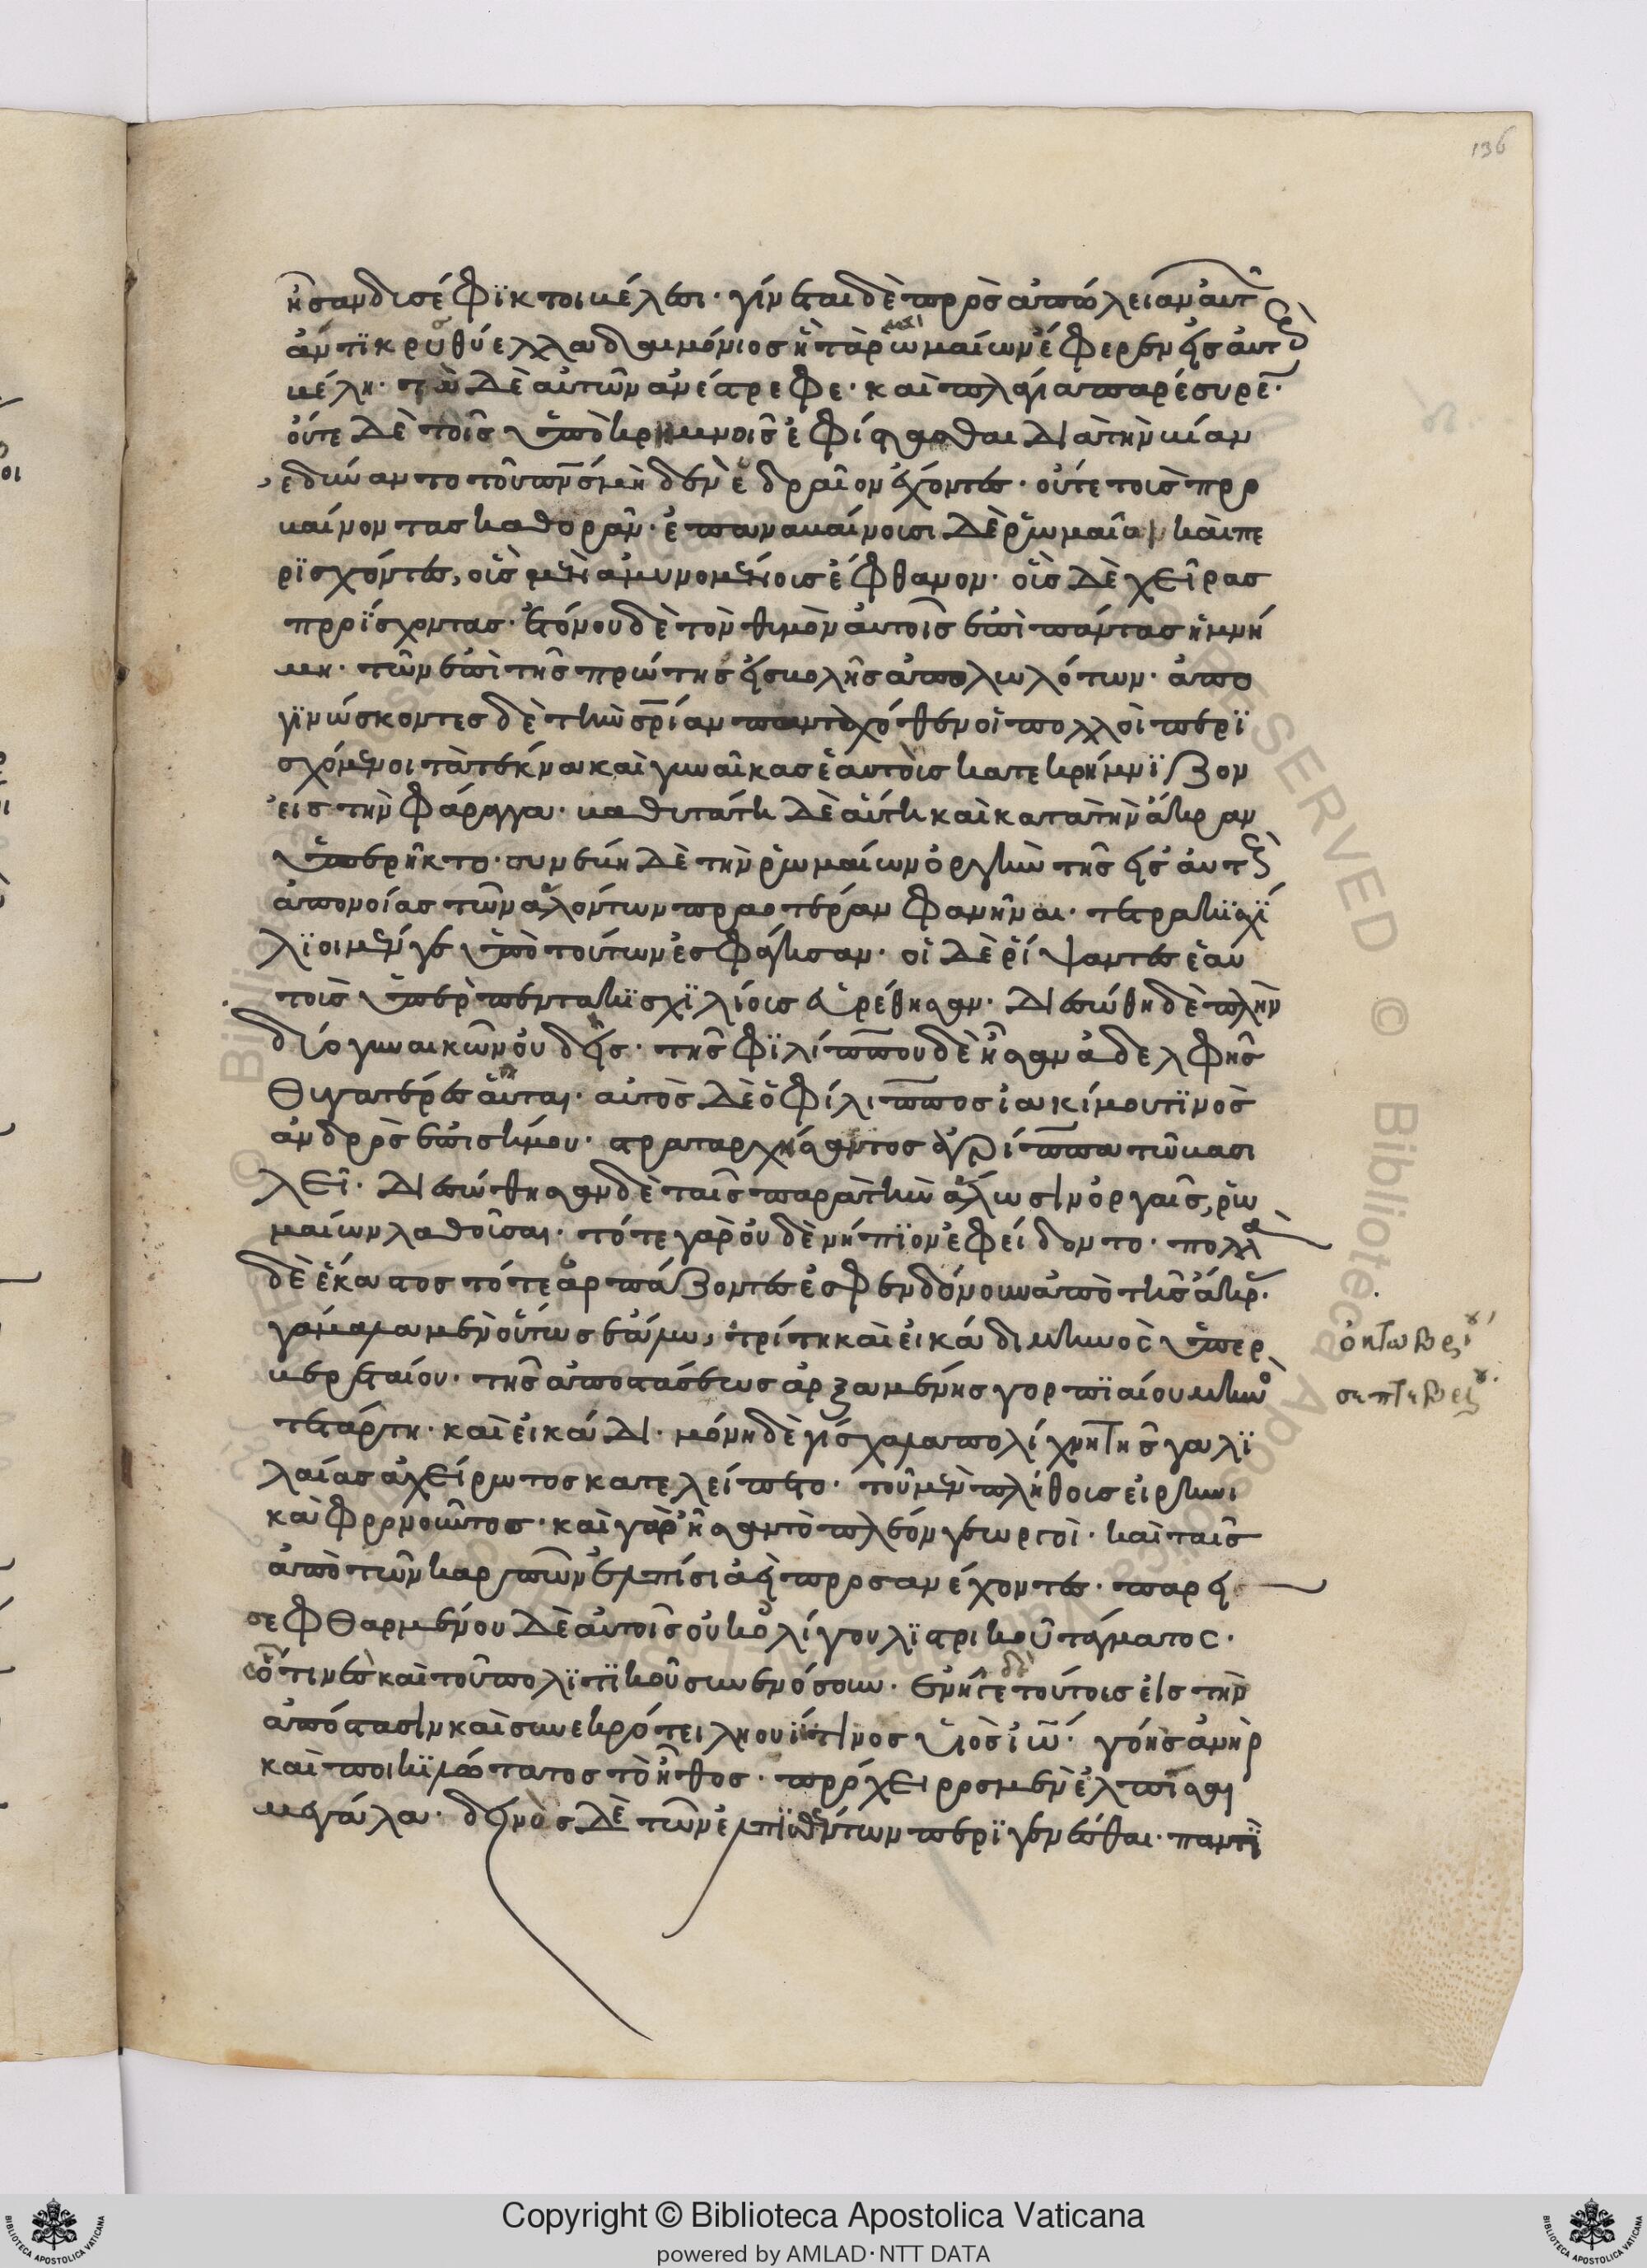 ἦσαν δυσέφϊκτοι βέλεσι· γίνεται δὲ πρὸς ἀπώλειαν αὐτῶν
ἄντϊκρυς θύελλα δαιμόνιος ἣ τὰ ῥωμαίων ἔφερεν εἰς αὐτοὺς
βέλη· τὰ δὲ αὐτῶν ἀνέστρεφε· καὶ πλάγια παρέσυρε·
οὔτε δὲ τοῖς ὑποκρήμνοις ἐφίστασθαι διὰ τὴν βίαν
ἐδύναντο τοῦ πν̅ς μηδὲν ἑδραῖον ἔχοντες· οὔτε τοὺς προ
βαίνοντας καθορᾶν· ἐπαναβαίνουσι δὲ ῥωμαῖοι καὶ πε
ρϊσχόντες, οὓς μὲν ἀμυνομένους ἔφθανον· οὓς δὲ χεῖρας
προΐσχοντας· ἐτόνου δὲ τὸν θυμὸν αὐτοῖς ἐπὶ πάντας ἡ μνή
μη· τῶν ἐπὶ τῆς πρώτης εἰσβολῆς ἀπολωλότων· ἀπο
γϊνώσκοντες δὲ τὴν σ̅ρίαν πανταχόθεν οἱ πολλοὶ περϊ
σχόμενοι τὰ τέκνα καὶ γυναῖκας ἑαυτοὺς κατεκρήμνϊζον
εἰς τὴν φάραγγα· βαθυτάτη δὲ αὕτη καὶ κατὰ τὴν ἄκραν
ὑπερῆκτο· συνέβη δὲ τὴν ῥωμαίων ὀργὴν τῆς εἰς αὑτοὺς
ἀπονοίας τῶν ἁλόντων πραοτέραν φανῆναι· τετρακϊσχί
λϊοι μέν γε ὑπὸ τούτων ἐσφάγησαν· οἱ δὲ ῥίψαντες ἑαυ
τοὺς ὑπὲρ πεντακϊσχϊλίους εὑρέθησαν· διεσώθη δὲ πλὴν
δύο γυναικῶν οὐδείς· τῆς φϊλίππου δὲ ἦσαν ἀδελφῆς
θυγατέρες αὗται· αὐτὸς δὲ ὁ φίλιππος ἰακίμου τϊνὸς
ἀνδρὸς ἐπισήμου· στραταρχήσαντος ἀγρίππα τῷ βασι
λεῖ· διεσώθησαν δὲ ταῖς παρὰ τὴν ἅλωσιν ὀργαῖς, ῥω
μαίων λαθοῦσαι· τότε γὰρ οὐδὲ νήπϊον ἐφείδοντο· πολλὰ
δὲ ἑκάστος τότε ἁρπάζοντες ἐσφενδόνουν ἀπὸ τῆς ἄκρ·
γάμαλα μὲν οὕτως ἑάλω, τρίτη καὶ εἰκάδι μηνὸς ὑπερ
βερεταίου· τῆς ἀποστάσεως ἀρξαμένης γορπϊαίου μηνὸς
τετάρτη· καὶ εἰκάδι· μόνη δὲ γίσχαλα πολίχνη τῆς γαλϊ
λαίας ἀχείρωτος κατελείπετο· τοῦ μὲν πλήθους εἰρηνι
κὰ φρονοῦντος· καὶ γὰρ ἦσαν τὸ πλέον γεωργοὶ· καὶ ταῖς
ἀπὸ τῶν καρπῶν ἐλπίσι ἀεὶ προσανέχοντες· παρει
σεφθαρμένου δὲ αὐτοῖς οὐκ ὀλίγου λϊστρικοῦ τάγματος·
ᾧ τινες καὶ τοῦ πολϊτϊκοῦ συνενόσουν· ἐνῆγε δὲ τούτους εἰς τὴν
ἀπόστασιν καὶ συνεκρότει ληουΐ τινος υἱὸς ἰω̅· γόης ἀνὴρ
καὶ ποικϊλώτατος τὸ ἦθος· πρόχειρος μὲν ἐλπίσαι
μεγάλα· δεινὸς δὲ τῶν ἐλπϊσθέντων περϊγενέσθαι· παντὶ
ὀκτωβρίου
σεπτεβρίου
136
Copyright © Biblioteca Apostolica Vaticana
powered by AMLAD·NTT DATA